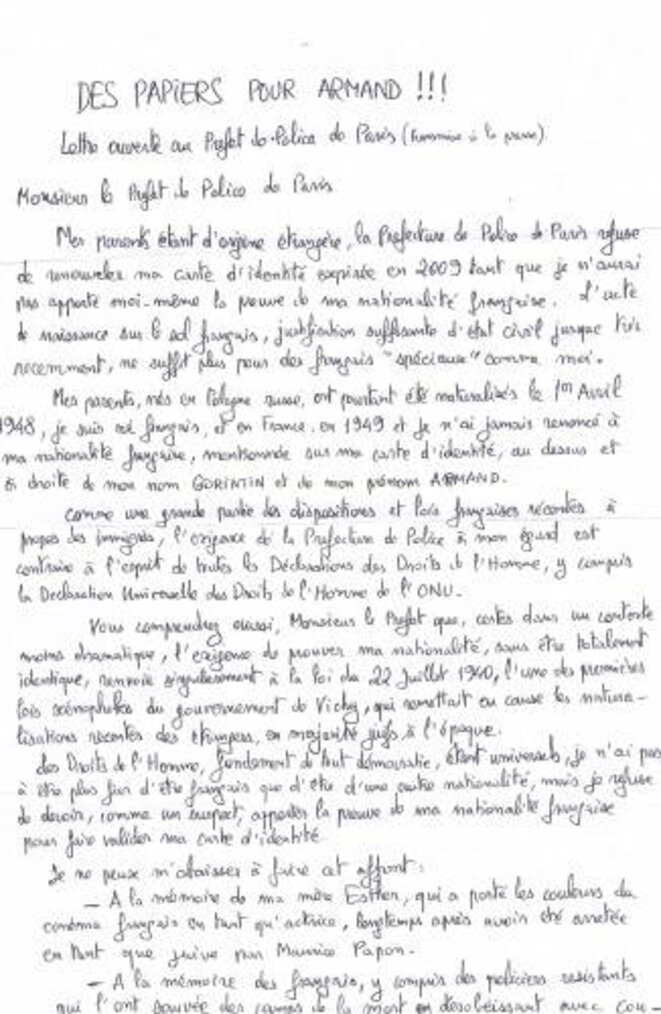 DES PAPIERS POUR ARMAND !!!
Lettre ouverte au Préfet de Police de Paris (transmise à la presse)
Monsieur le Préfet de Police de Paris
Mes parents étant d'origine étrangère, la Préfecture de Police de Paris refuse
de renouveler ma carte d'identité expirée en 2009 tant que je n'aurai
pas apporté moi-même la preuve de ma nationalité française. L'acte
de naissance sur le sol français, justification suffisante d'état civil jusque très
recemment, ne suffit plus pour des français "spéciaux" comme moi.
Mes parents, nés en Pologne russe, ont pourtant été naturalisés le 1er Avril
1948, je suis né français, et en France, en 1949 et je n'ai jamais renoncé à
ma nationalité française, mentionnée sur ma carte d'identité, au dessus et
à droite de mon nom GORINTIN et de mon prénom ARMAND.
Comme une grande partie des dispositions et lois françaises récentes à
propos des immigrés, l'exigence de la Préfecture de Police à mon égard est
contraire à l'esprit de toutes les Déclarations des Droits de l'Homme, y compris
la Declaration Universelle des Droits de l'Homme de l'ONU.
Vous comprendrez aussi, Monsieur le Préfet que, certes dans un contexte
moins dramatique, l'exigence de prouver ma nationalité, sans être totalement
identique, renvoie singulièrement à la loi du 22 Juillet 1940, l'une des premières
lois xénophobes du gouvernement de Vichy, qui remettait en cause les natura-
lisations récentes des étrangers, en majorité juifs, à l'époque.
Les Droits de l'Homme, fondement de tout démocratie, étant universels, je n'ai pas
à être plus fier d'être français que d'être d'une autre nationalité, mais je refuse
de devoir, comme un suspect, apporter la preuve de ma nationalité française
pour faire valider ma carte d'identité.
Je ne peux m'abaisser à faire cet affront :
– A la mémoire de ma mère Esther, qui a porté les couleurs du
cinéma français en tant qu'actrice, longtemps après avoir été arretée
en tant que juive par Maurice Papon.
– A la mémoire des français, y compris des policiers resistants
qui l'ont sauvée des camps de la mort en desobéissant avec cou-